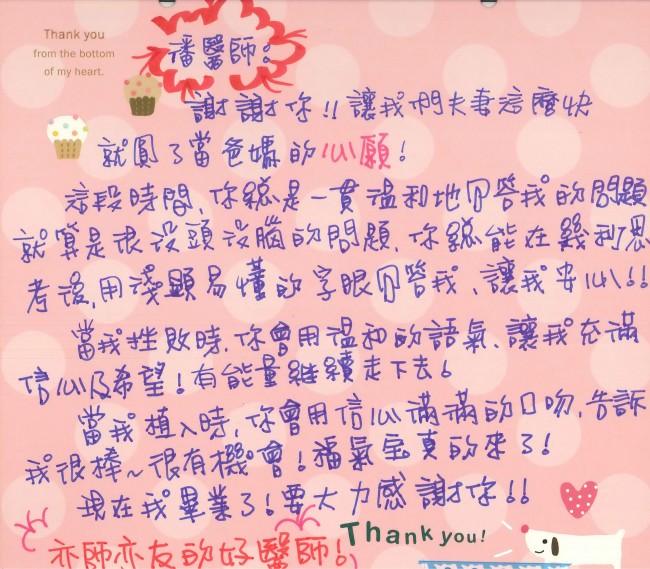 Thank you
from the bottom
of my heart.
潘醫師!
謝謝你!!讓我們夫妻這麼快
就圓了當爸媽的心願!
這段時間,你總是一貫溫和地回答我的問題
就算是很沒頭沒腦的問題,你總能在幾秒思
考後,用淺顯易懂的字眼回答我、讓我安心!!
當我挫敗時,你會用溫和的語氣、讓我充滿
信心及希望!有能量繼續走下去。
當我植入時,你會用信心滿滿的口吻,告訴
我很棒~很有機會!福氣寶真的來了!
現在我畢業了!要大力感謝你!!
亦師亦友的好醫師!
Thank you!